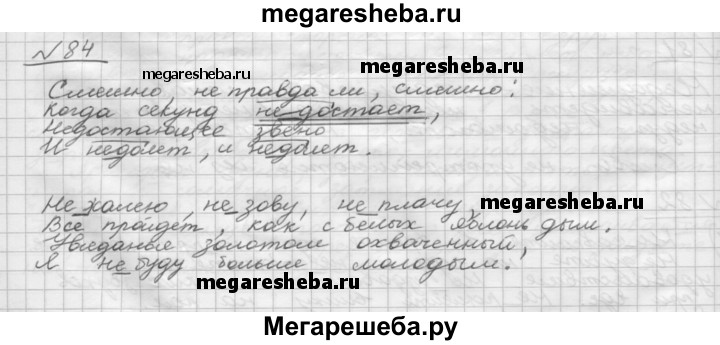 megaresheba.ru
№ 84
megaresheba.ru
Смешно, не правда ли, смешно:
Когда секунд не достает,
Недостающее звено
И недолет, и недолет.
Не жалею, не зову, не плачу,
megaresheba.ru
Все пройдет, как с белых яблонь дым.
Увяданья золотом охваченный,
Я не буду больше молодым.
megaresheba.ru
Мегарешеба.ру